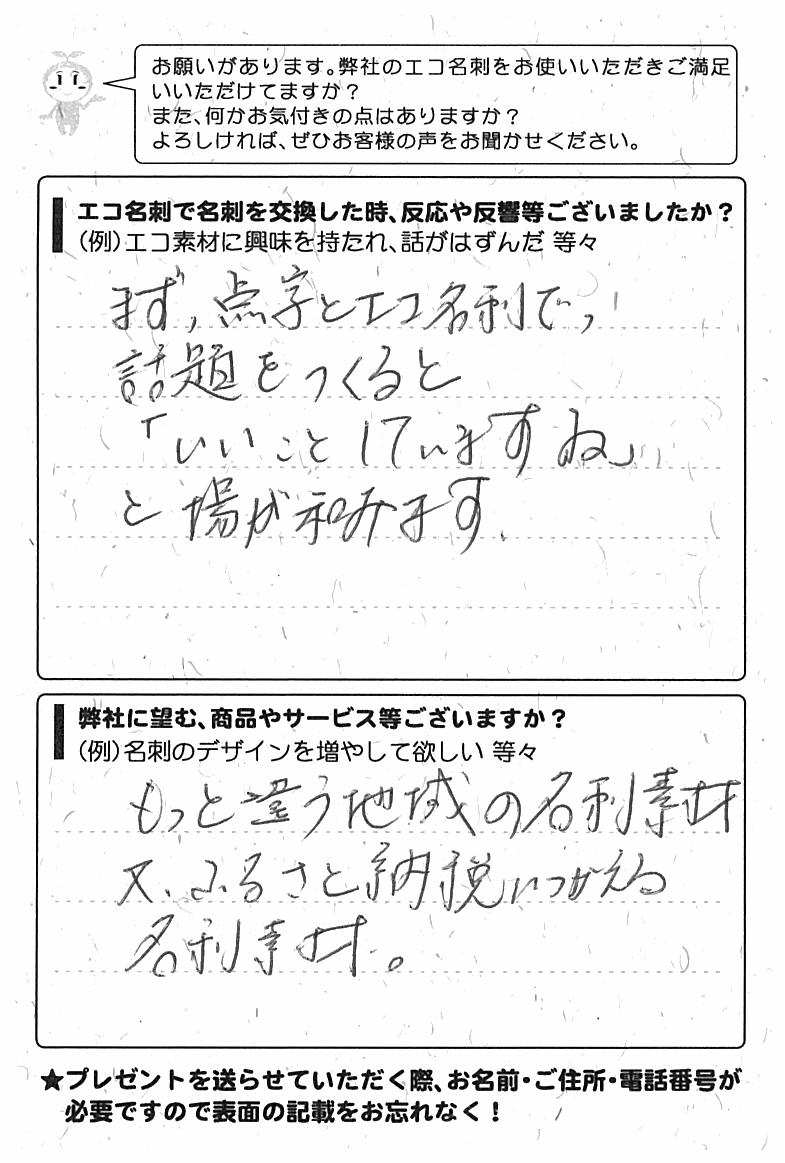 お願いがあります。弊社のエコ名刺をお使いいただきご満足
いいただけてますか？
また、何かお気付きの点はありますか？
よろしければ、ぜひお客様の声をお聞かせください。
エコ名刺で名刺を交換した時、反応や反響等ございましたか？
（例）エコ素材に興味を持たれ、話がはずんだ 等々
まず、点字とエコ名刺で、
話題をつくると
「いいことしていますね」
と場が和みます.
弊社に望む、商品やサービス等ございますか？
（例）名刺のデザインを増やして欲しい 等々
もっと違う地域の名刺素材
又、ふるさと納税につかえる
名刺素材。
★プレゼントを送らせていただく際、お名前・ご住所・電話番号が
必要ですので表面の記載をお忘れなく！